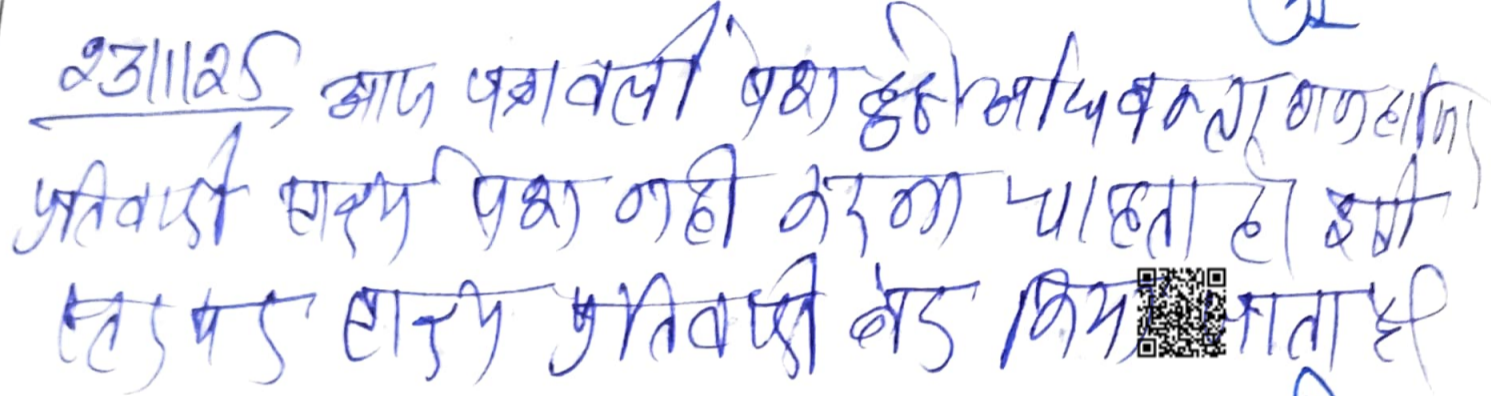 23/1/25 आज पत्रावली पेश हुई। अधिवक्तागण हाजिर
प्रतिवादी साक्ष्य पेश नहीं करना चाहता है। इसी
स्तर पर साक्ष्य प्रतिवादी बंद किया जाता है।